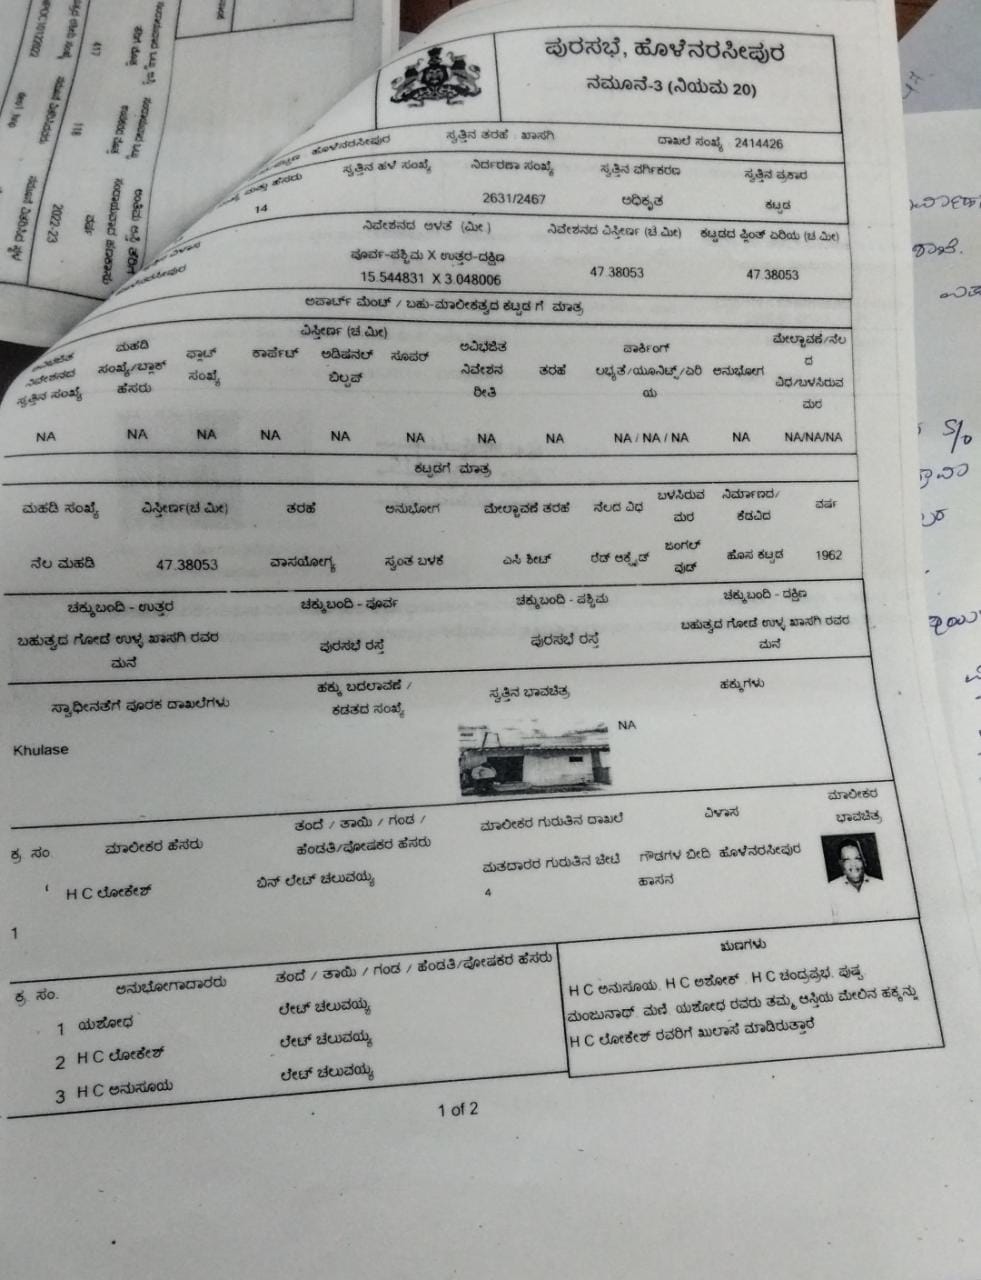 ಪುರಸಭೆ, ಹೊಳೆನರಸೀಪುರ
ನಮೂನೆ-3 (ನಿಯಮ 20)
ಹೊಳೆನರಸೀಪುರ ಸ್ವತ್ತಿನ ತರಹೆ ಖಾಸಗಿ ದಾಖಲೆ ಸಂಖ್ಯೆ 2414426
ಹೆಸರು ಸ್ವತ್ತಿನ ಹಳೆ ಸಂಖ್ಯೆ ನಿರ್ದರಣಾ ಸಂಖ್ಯೆ ಸ್ವತ್ತಿನ ವರ್ಗಿಕರಣ ಸ್ವತ್ತಿನ ಪ್ರಕಾರ
14 2631/2467 ಅಧಿಕೃತ ಕಟ್ಟಡ
ನಿವೇಶನದ ಅಳತೆ (ಮೀ.) ನಿವೇಶನದ ವಿಸ್ತೀರ್ಣ (ಚ ಮೀ) ಕಟ್ಟಡದ ಪ್ಲಿಂತ್ ಏರಿಯ (ಚ ಮೀ)
ಪೂರ್ವ-ಪಶ್ಚಿಮ X ಉತ್ತರ-ದಕ್ಷಿಣ
15.544831 X 3.048006 47.38053 47.38053
ಅಪಾರ್ಟ್ ಮೆಂಟ್ / ಬಹು-ಮಾಲೀಕತ್ವದ ಕಟ್ಟಡ ಗೆ ಮಾತ್ರ
ವಿಸ್ತೀರ್ಣ (ಚ ಮೀ)
ನಿವೇಶನದ ಸ್ವತ್ತಿನ ಸಂಖ್ಯೆ ಮಹಡಿ ಸಂಖ್ಯೆ/ಬ್ಲಾಕ್ ಹೆಸರು ಫ್ಲಾಟ್ ಸಂಖ್ಯೆ ಕಾರ್ಪೆಟ್ ಅಡಿಷನಲ್ ಬಿಲ್ಟಪ್ ಸೂಪರ್ ಅವಿಭಜಿತ ನಿವೇಶನ ರೀತಿ ತರಹೆ ಪಾರ್ಕಿಂಗ್ ಲಭ್ಯತೆ/ಯೂನಿಟ್ಸ್/ಏರಿಯ ಅನುಭೋಗ ಮೇಲ್ಚಾವಣಿ/ನೆಲದ ವಿಧ/ಬಳಸಿರುವ ಮರ
NA NA NA NA NA NA NA NA NA / NA / NA NA NA/NA/NA
ಕಟ್ಟಡಗೆ ಮಾತ್ರ
ಮಹಡಿ ಸಂಖ್ಯೆ ವಿಸ್ತೀರ್ಣ(ಚ ಮೀ) ತರಹೆ ಅನುಭೋಗ ಮೇಲ್ಚಾವಣಿ ತರಹೆ ನೆಲದ ವಿಧ ಬಳಸಿರುವ ಮರ ನಿರ್ಮಾಣದ/ಕೆಡವಿದ ವರ್ಷ
ನೆಲ ಮಹಡಿ 47.38053 ವಾಸಯೋಗ್ಯ ಸ್ವಂತ ಬಳಕೆ ಎಸಿ ಶೀಟ್ ರೆಡ್ ಆಕ್ಸೈಡ್ ಜಂಗಲ್ ವುಡ್ ಹೊಸ ಕಟ್ಟಡ 1962
ಚಕ್ಕುಬಂದಿ - ಉತ್ತರ ಚಕ್ಕುಬಂದಿ - ಪೂರ್ವ ಚಕ್ಕುಬಂದಿ - ಪಶ್ಚಿಮ ಚಕ್ಕುಬಂದಿ - ದಕ್ಷಿಣ
ಬಹುತ್ವದ ಗೋಡೆ ಉಳ್ಳ ಖಾಸಗಿ ರವರ ಮನೆ ಪುರಸಭೆ ರಸ್ತೆ ಪುರಸಭೆ ರಸ್ತೆ ಬಹುತ್ವದ ಗೋಡೆ ಉಳ್ಳ ಖಾಸಗಿ ರವರ ಮನೆ
ಸ್ವಾಧೀನತೆಗೆ ಪೂರಕ ದಾಖಲೆಗಳು ಹಕ್ಕು ಬದಲಾವಣೆ / ಕಡತದ ಸಂಖ್ಯೆ ಸ್ವತ್ತಿನ ಭಾವಚಿತ್ರ ಹಕ್ಕುಗಳು
Khulase NA
ಕ್ರ. ಸಂ. ಮಾಲೀಕರ ಹೆಸರು ತಂದೆ / ತಾಯಿ / ಗಂಡ / ಹೆಂಡತಿ/ಪೋಷಕರ ಹೆಸರು ಮಾಲೀಕರ ಗುರುತಿನ ದಾಖಲೆ ವಿಳಾಸ ಮಾಲೀಕರ ಭಾವಚಿತ್ರ
1 H C ಲೋಕೇಶ್ ಬಿನ್ ಲೇಟ್ ಚಲುವಯ್ಯ ಮತದಾರರ ಗುರುತಿನ ಚೀಟಿ 4 ಗೌಡಗಳ ಬೀದಿ ಹೊಳೆನರಸೀಪುರ ಹಾಸನ
ಕ್ರ. ಸಂ. ಅನುಭೋಗಾದಾರರು ತಂದೆ / ತಾಯಿ / ಗಂಡ / ಹೆಂಡತಿ/ಪೋಷಕರ ಹೆಸರು
1 ಯಶೋಧ ಲೇಟ್ ಚಲುವಯ್ಯ
2 H C ಲೋಕೇಶ್ ಲೇಟ್ ಚಲುವಯ್ಯ
3 H C ಅನುಸೂಯ ಲೇಟ್ ಚಲುವಯ್ಯ
ಋಣಗಳು
H C ಅನುಸೂಯ, H C ಅಶೋಕ್, H C ಚಂದ್ರಪ್ರಭ, ಪುಷ್ಪ
ಮಂಜುನಾಥ್, ಮಣಿ, ಯಶೋಧ ರವರು ತಮ್ಮ ಆಸ್ತಿಯ ಮೇಲಿನ ಹಕ್ಕನ್ನು
H C ಲೋಕೇಶ್ ರವರಿಗೆ ಖುಲಾಸೆ ಮಾಡಿರುತ್ತಾರೆ
1 of 2
417
118
2022-23
ವರ್ಷ
S/o